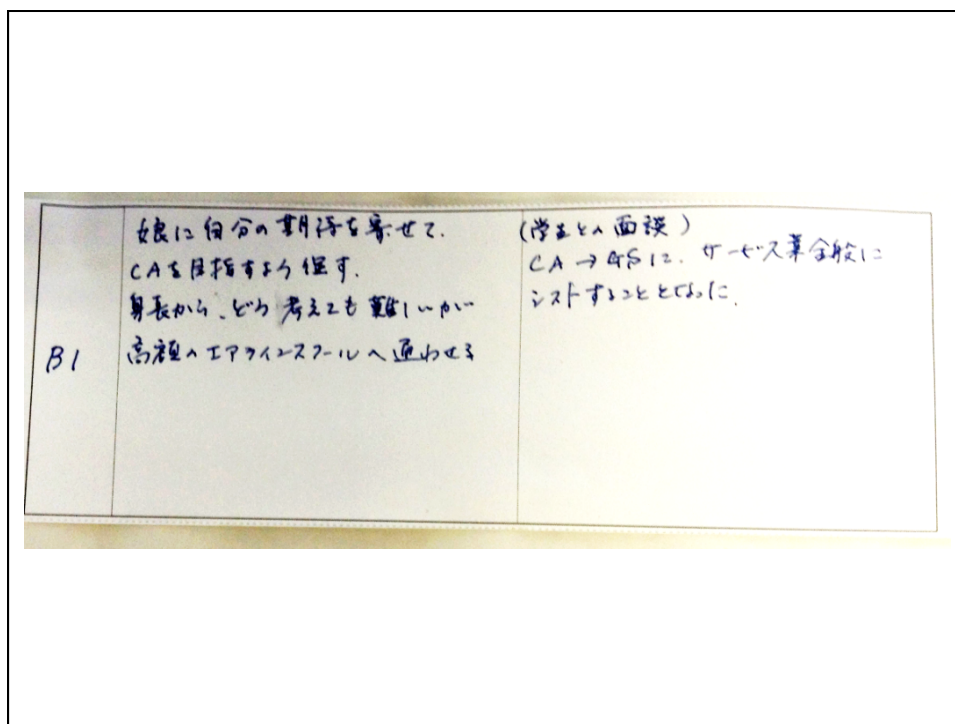 B1
娘に自分の期待を寄せて、
CAを目指すよう促す。
身長から、どう考えても難しいが
高額のエアラインスクールへ通わせる
(学生との面談)
CA→GSに、サービス業全般に
シフトすることとなった。